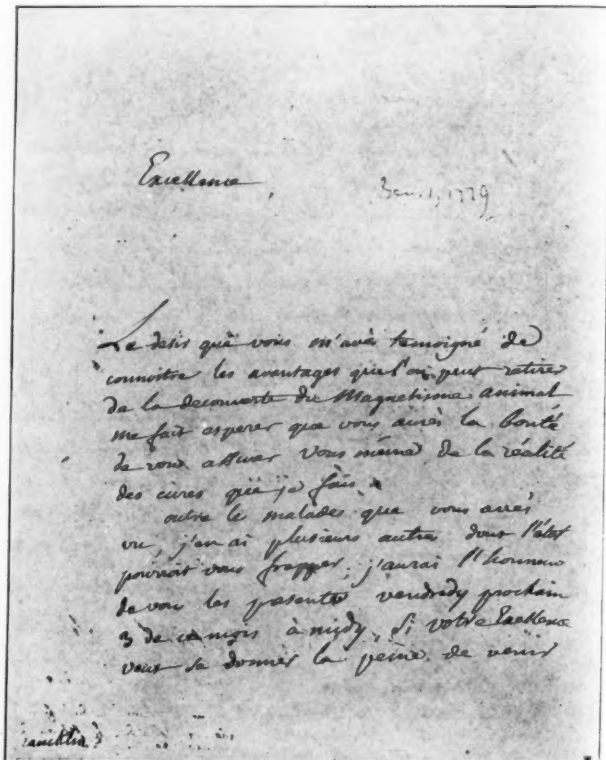 Excellence
1779
Le desir que vous m'avés temoigné de
connoitre les avantages que l'on peut retirer
de la decouverte du Magnetisme animal
me fait esperer que vous aurés la bonté
de vous assurer vous même de la réalité
des cures que je fais.
outre le malades que vous avés
vu, j'en ai plusieurs autres dont l'état
pourroit vous frapper, j'aurai l'honneur
de vous les presenter vendredy prochain
3 de ce mois à midy, si votre Excellence
veut se donner la peine de venir